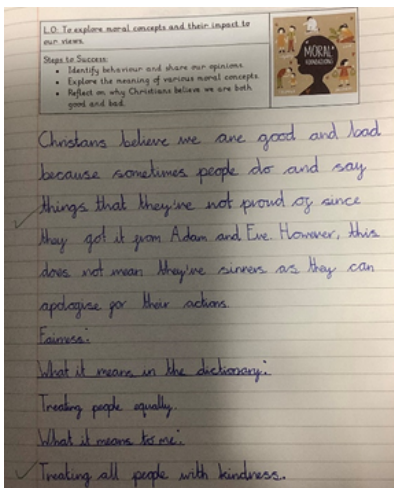 L.O: To explore moral concepts and their impact to
our views.
Steps to Success:
• Identify behaviour and share our opinions
• Explore the meaning of various moral concepts
• Reflect on why Christians believe we are both
good and bad.
MORAL
FOUNDATIONS
Christans believe we are good and bad
because sometimes people do and say
things that they're not proud of since
they got it from Adam and Eve. However, this
does not mean they're sinners as they can
apologise for their actions
Fairness:
What it means in the dictionary:
Treating people equally.
What it means to me:
Treating all people with kindness.